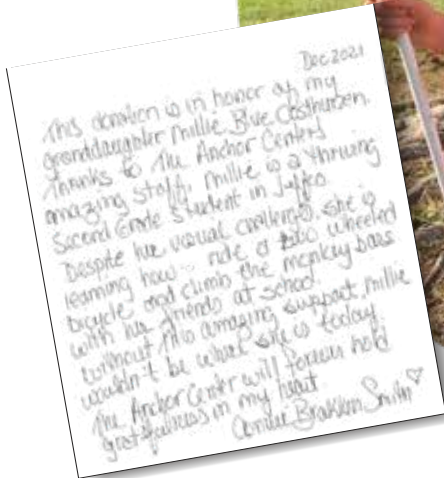 Dec 2021
This donation is in honor of my
granddaughter Millie Blue
Thanks to The Anchor Center's
amazing staff, Millie is a thriving
Second Grade Student in
Despite her visual challenges, she is
learning how ride a two wheeled
bicycle and climb the monkey bars
with her friends at school.
Without this amazing support, Millie
wouldn't be what she is today.
The Anchor Center will forever hold
gratefulness in my heart
Smith